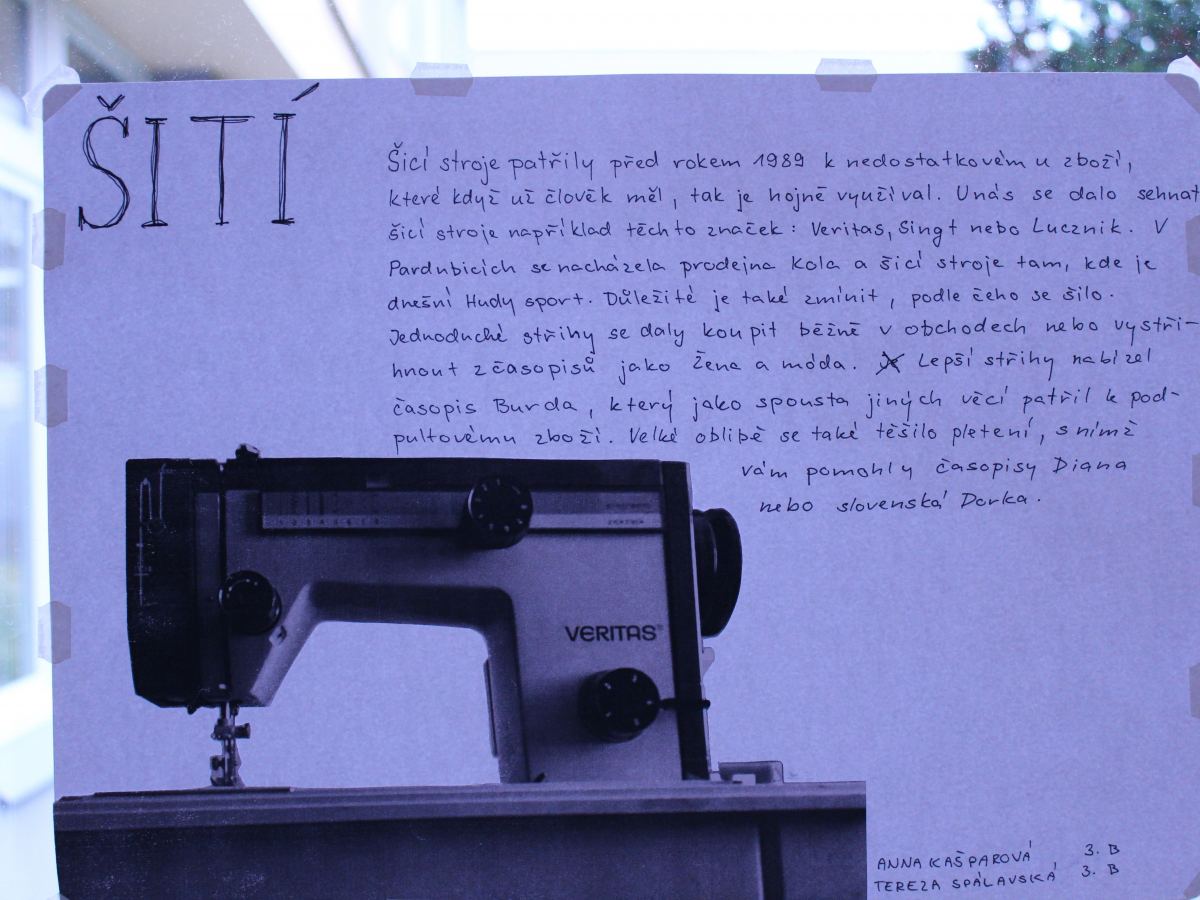 ŠITÍ
Šicí stroje patřily před rokem 1989 k nedostatkovém u zboží,
které když už člověk měl, tak je hojně využíval. U nás se dalo sehnat
šicí stroje například těchto značek: Veritas, Singt nebo Lucznik. V
Pardubicích se nacházela prodejna Kola a šicí stroje tam, kde je
dnešní Hudy sport. Důležité je také zmínit, podle čeho se šilo.
Jednoduché střihy se daly koupit běžně v obchodech nebo vystři-
hnout z časopisů jako Žena a móda. Lepší střihy nabízel
časopis Burda, který jako spousta jiných věcí patřil k pod-
pultovému zboží. Velké oblibě se také těšilo pletení, s nímž
vám pomohly časopisy Diana
nebo slovenská Dorka.
VERITAS
ANNA KAŠPAROVÁ 3. B
TEREZA SPÁLAVSKÁ 3. B